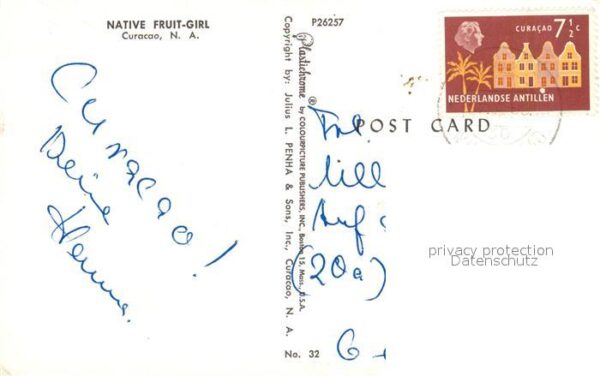 NATIVE FRUIT-GIRL
Curacao, N. A.
Curacao!
Deine
P26257
Plastichrome® by COLOURPICTURE PUBLISHERS, INC., Boston 15, Mass., U.S.A.
Copyright by: Julius L. PENHA & Sons, Inc., Curacao, N. A.
No. 32
CURAÇAO 7½ c
NEDERLANDSE ANTILLEN
POST CARD
Frl.
(20a)
privacy protection
Datenschutz